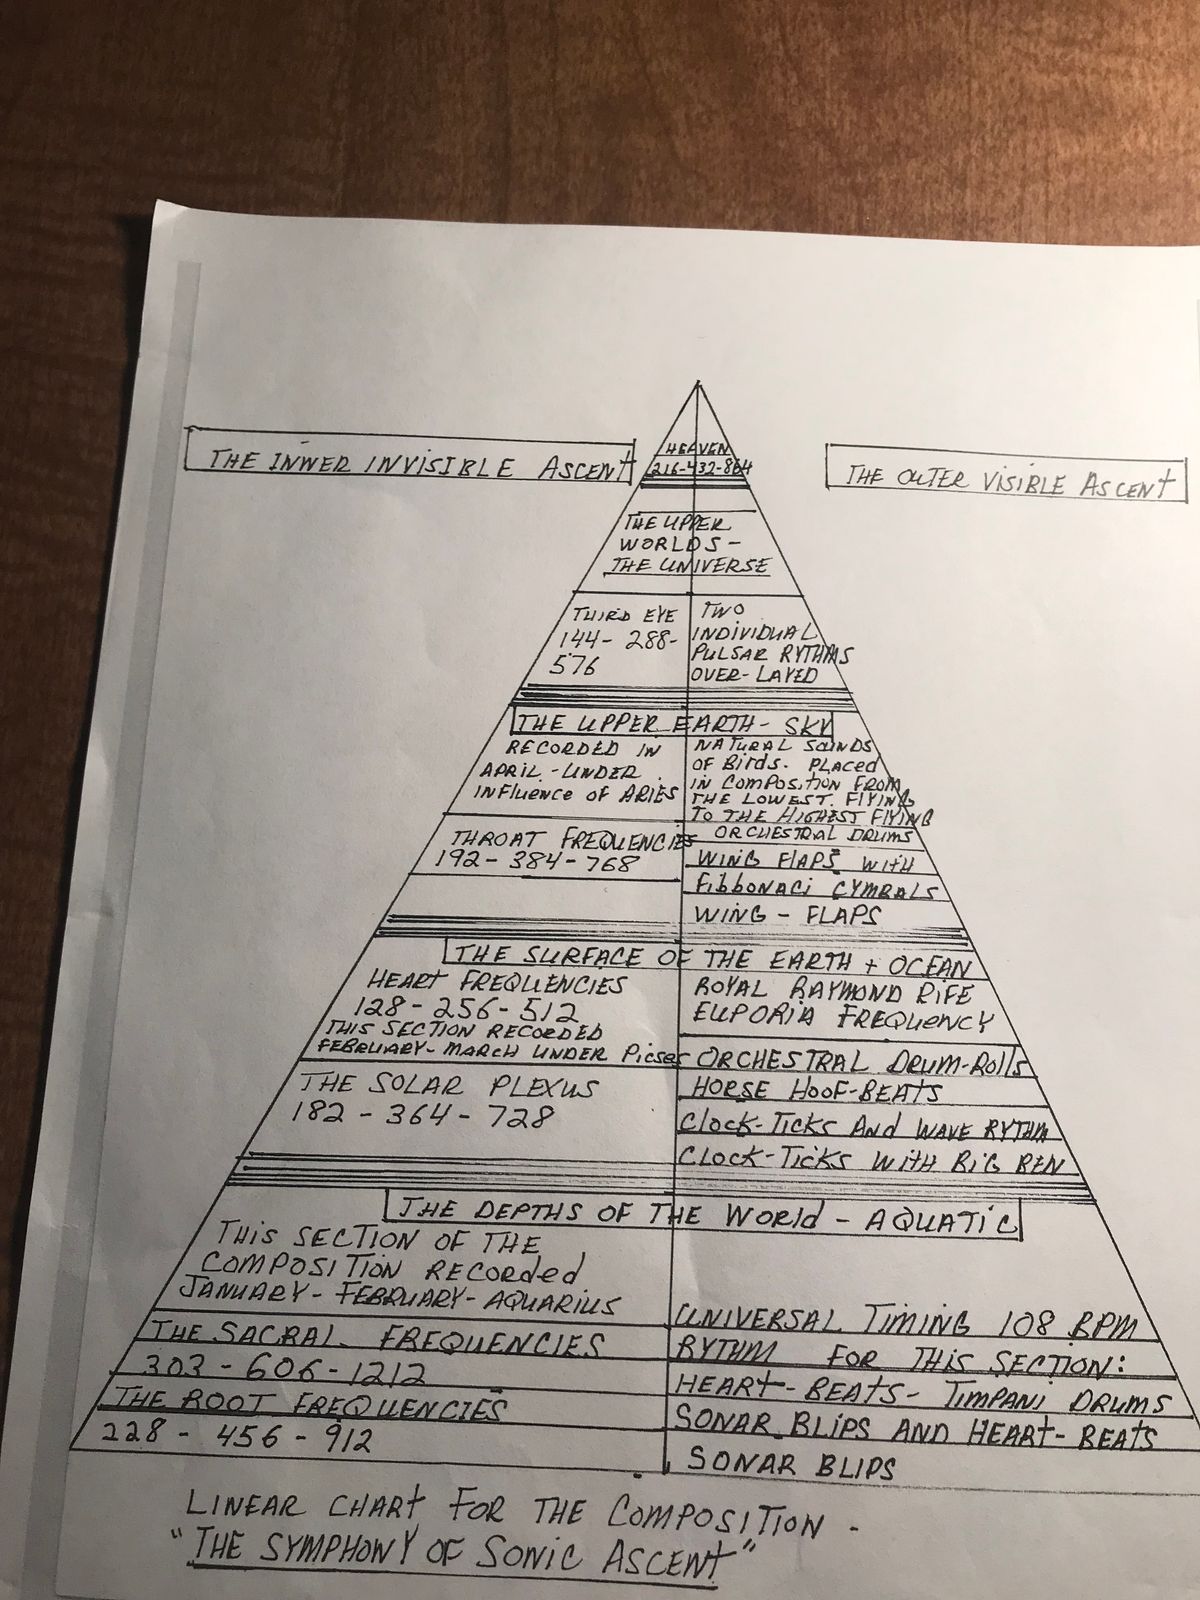 THE INNER INVISIBLE ASCENT
HEAVEN
216-432-864
THE OUTER VISIBLE ASCENT
THE UPPER
WORLDS-
THE UNIVERSE
THIRD EYE
144- 288-
576
TWO
INDIVIDUAL
PULSAR RYTHMS
OVER-LAYED
THE UPPER EARTH- SKY
RECORDED IN
APRIL-UNDER
INFLUENCE OF ARIES
NATURAL SOUNDS
OF BIRDS. PLACED
IN COMPOSITION FROM
THE LOWEST. FLYING
TO THE HIGHEST FLYING
THROAT FREQUENCIES
192-384-768
ORCHESTRAL DRUMS
WING FLAPS WITH
FIBBONACI CYMBALS
WING - FLAPS
THE SURFACE OF THE EARTH + OCEAN
HEART FREQUENCIES
128-256-512
THIS SECTION RECORDED
FEBRUARY-MARCH UNDER PICSES
THE SOLAR PLEXUS
182-364-728
ROYAL RAYMOND RIFE
EUPORIA FREQUENCY
ORCHESTRAL DRUM-ROLLS
HORSE HOOF-BEATS
CLOCK-TICKS AND WAVE RYTHM
CLOCK-TICKS WITH BIG BEN
THE DEPTHS OF THE WORLD - AQUATIC
THIS SECTION OF THE
COMPOSITION RECORDED
JANUARY-FEBRUARY-AQUARIUS
THE SACRAL FREQUENCIES
303-606-1212
THE ROOT FREQUENCIES
228 - 456 - 912
UNIVERSAL TIMING 108 BPM
RYTHM FOR THIS SECTION:
HEART-BEATS- TIMPANI DRUMS
SONAR BLIPS AND HEART-BEATS
SONAR BLIPS
LINEAR CHART FOR THE COMPOSITION -
"THE SYMPHONY OF SONIC ASCENT"